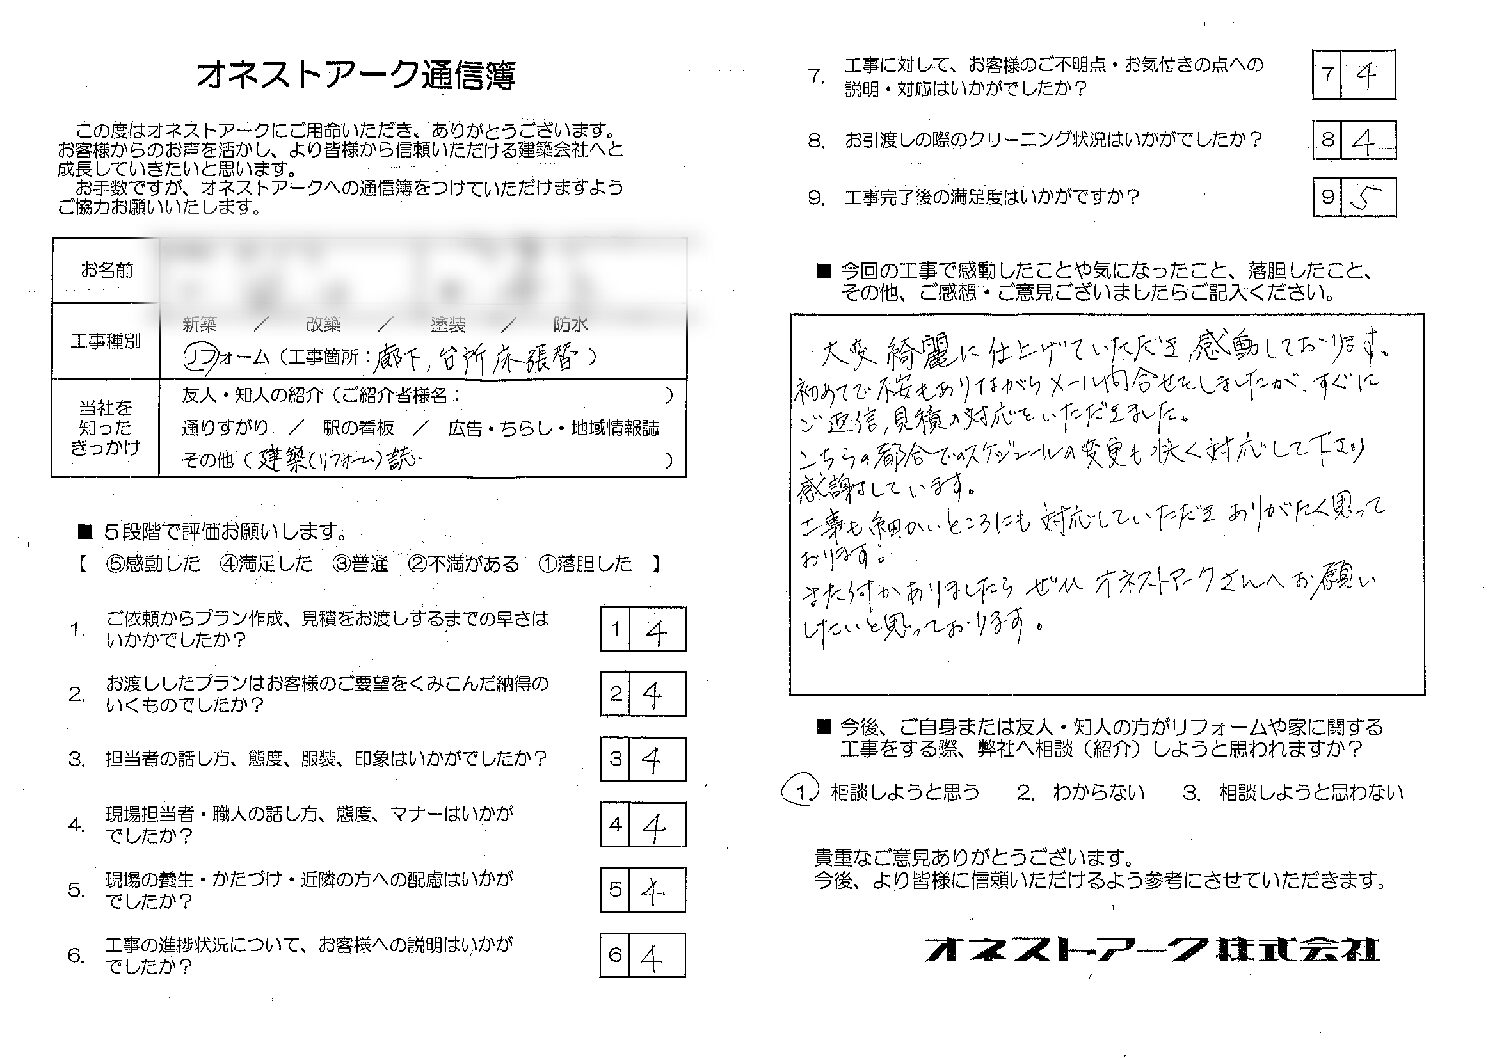 オネストアーク通信簿
この度はオネストアークにご用命いただき、ありがとうございます。
お客様からのお声を活かし、より皆様から信頼いただける建築会社へと
成長していきたいと思います。
お手数ですが、オネストアークへの通信簿をつけていただけますよう
ご協力お願いいたします。
お名前
工事種別
新築 ／ 改築 ／ 塗装 ／ 防水
リフォーム（工事箇所：廊下，台所床張替）
当社を
知った
きっかけ
友人・知人の紹介（ご紹介者様名： ）
通りすがり ／ 駅の看板 ／ 広告・ちらし・地域情報誌
その他（建築(リフォーム)誌 ）
■ 5段階で評価お願いします。
【 ⑤感動した ④満足した ③普通 ②不満がある ①落胆した 】
1. ご依頼からプラン作成、見積をお渡しするまでの早さは
いかがでしたか？
1 4
2. お渡ししたプランはお客様のご要望をくみこんだ納得の
いくものでしたか？
2 4
3. 担当者の話し方、態度、服装、印象はいかがでしたか？
3 4
4. 現場担当者・職人の話し方、態度、マナーはいかが
でしたか？
4 4
5. 現場の養生・かたづけ・近隣の方への配慮はいかが
でしたか？
5 4
6. 工事の進捗状況について、お客様への説明はいかが
でしたか？
6 4
7. 工事に対して、お客様のご不明点・お気付きの点への
説明・対応はいかがでしたか？
7 4
8. お引渡しの際のクリーニング状況はいかがでしたか？
8 4
9. 工事完了後の満足度はいかがですか？
9 5
■ 今回の工事で感動したことや気になったこと、落胆したこと、
その他、ご感想・ご意見ございましたらご記入ください。
大変綺麗に仕上げていただき、感動しております。
初めてで不安もありながらメール問合せをしましたが、すぐに
ご返信，見積の対応をいただきました。
こちらの都合でのスケジュールの変更も快く対応して下さり
感謝しています。
工事も細かいところにも対応していただき ありがたく思って
おります。
また何かありましたら ぜひ オネストアークさんへお願い
したいと思っております。
■ 今後、ご自身または友人・知人の方がリフォームや家に関する
工事をする際、弊社へ相談（紹介）しようと思われますか？
1. 相談しようと思う 2. わからない 3. 相談しようと思わない
貴重なご意見ありがとうございます。
今後、より皆様に信頼いただけるよう参考にさせていただきます。
オネストアーク株式会社